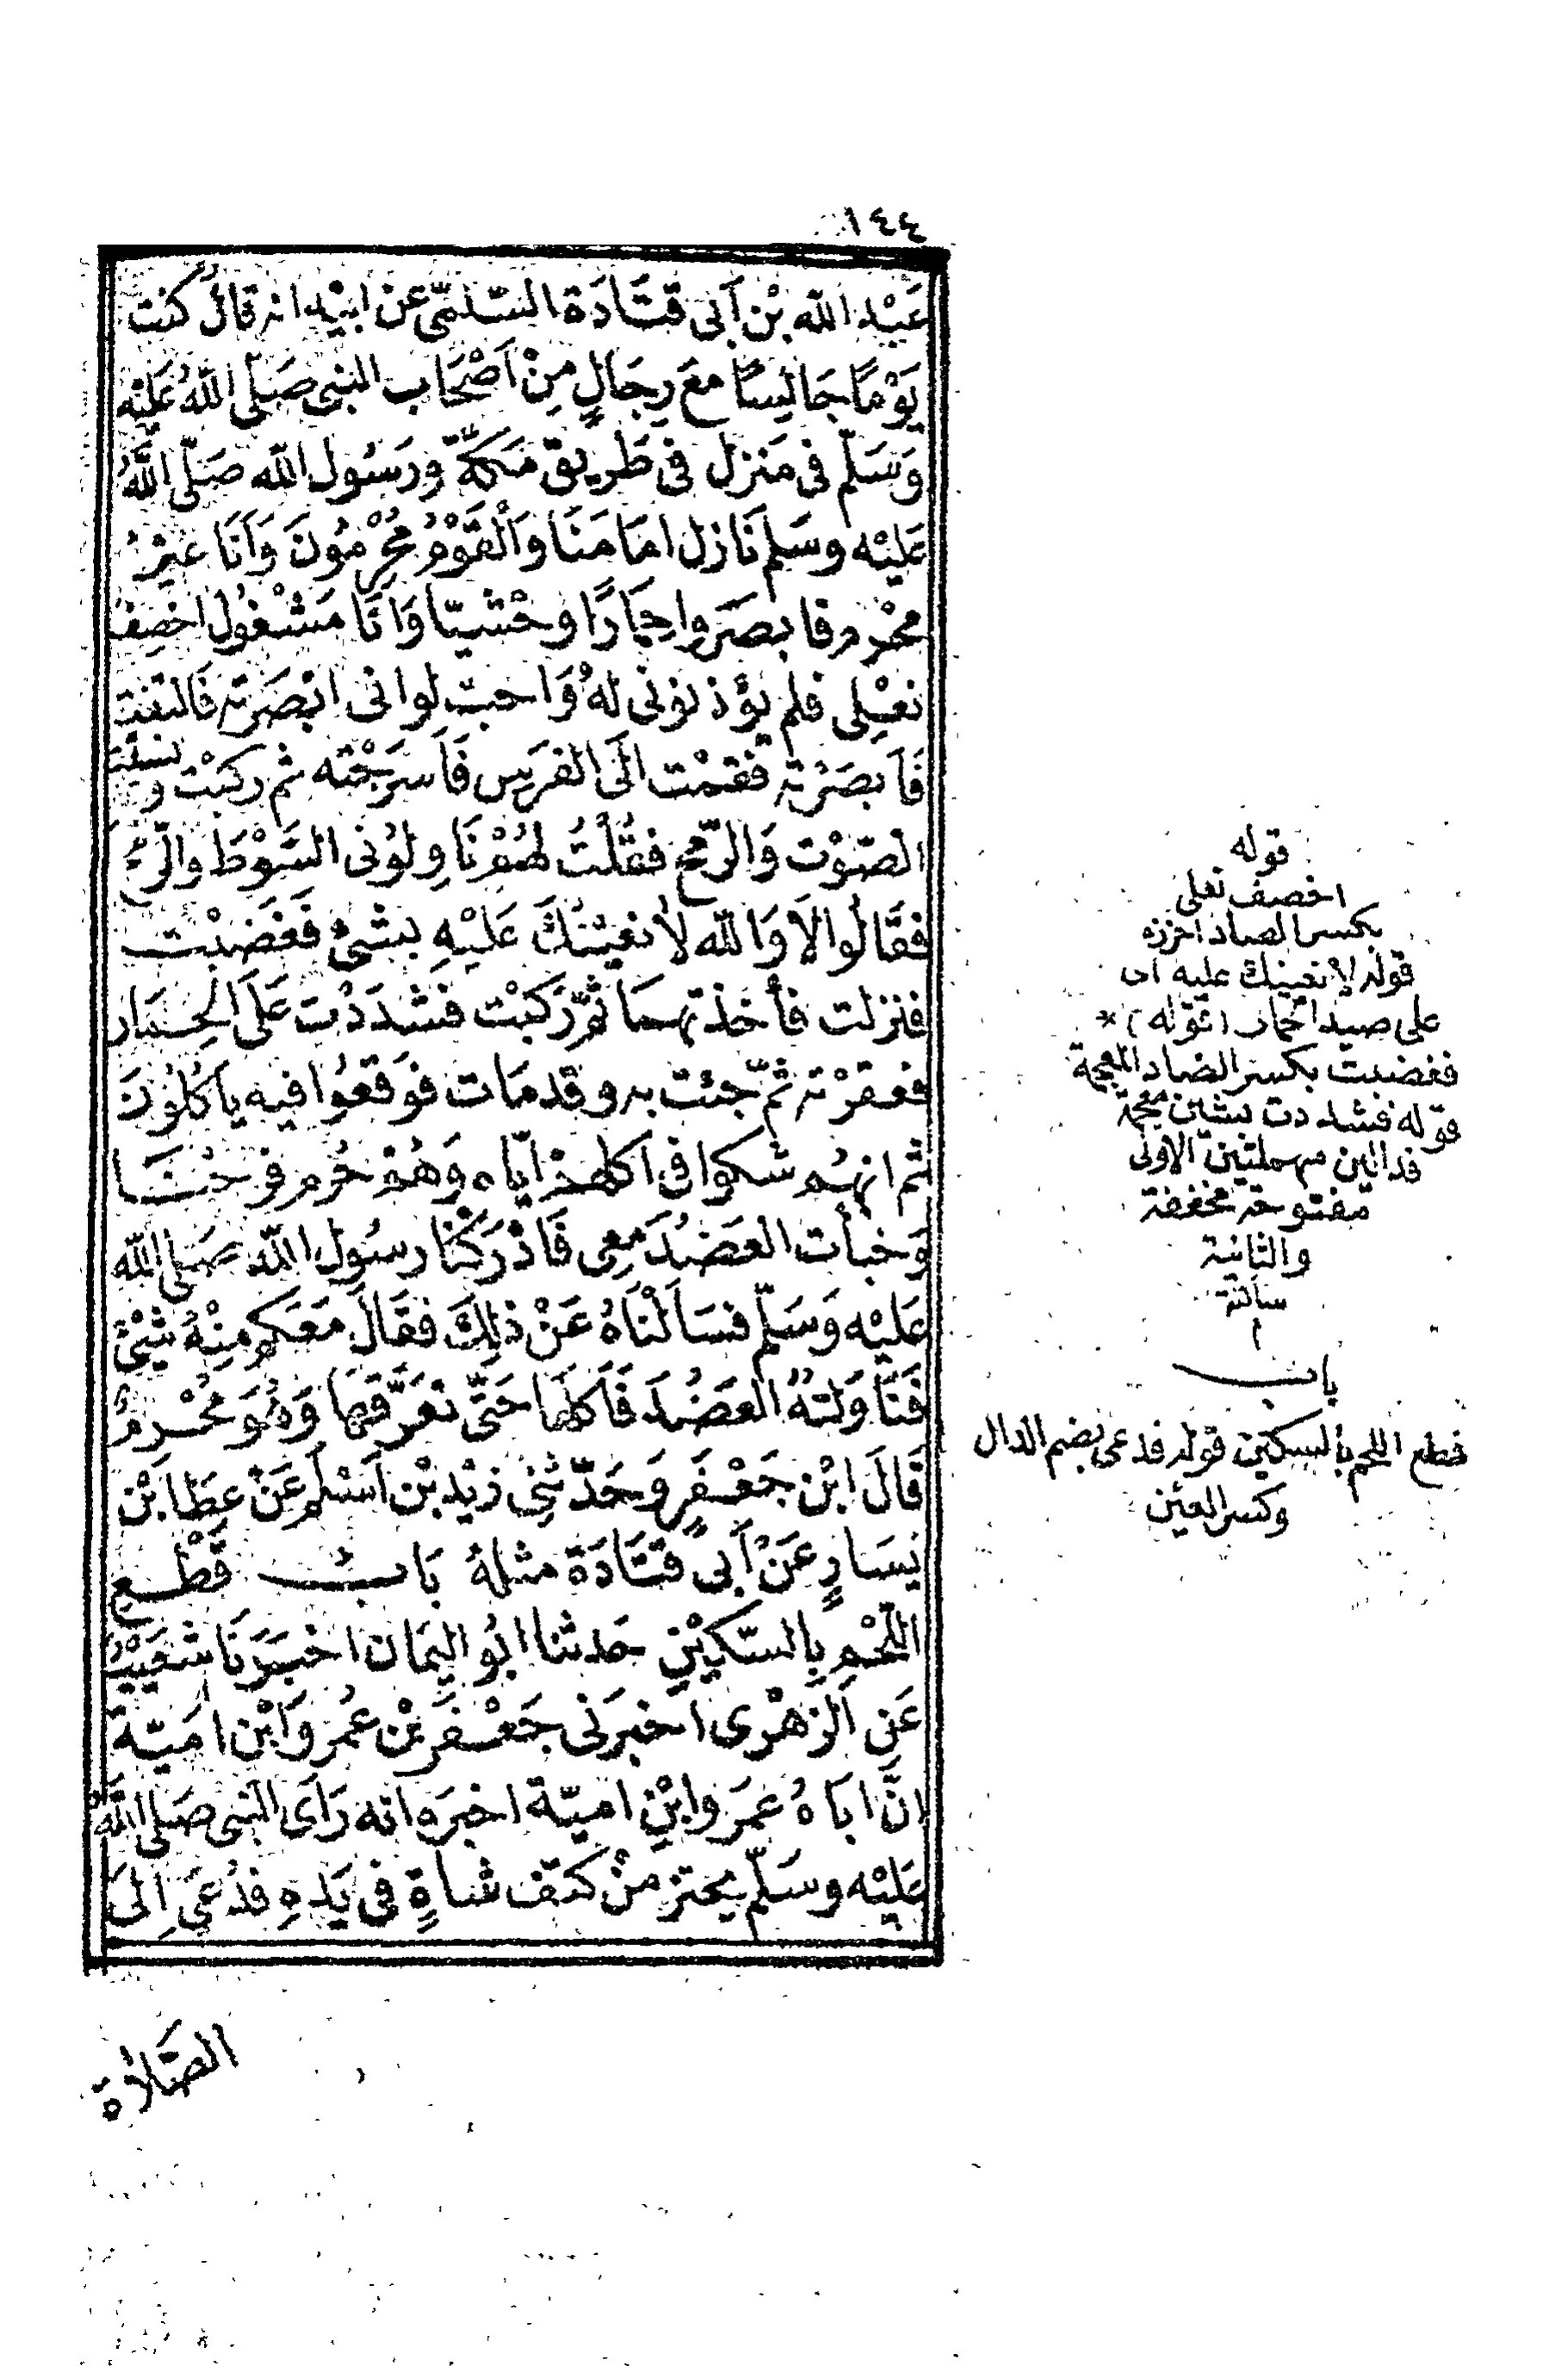 ١٤٤
عَبْد الله بْن أَبى قتَادَة السّلمّى عَن ابيْه انه قال كنت
يَوْمًا جَالِسًا معَ رِجَالٍ مِنْ اَصْحَاب النبى صَلّى اللّهُ عَلَيْه
وَسَلّم فى مَنزل فى طَريق مَكّة وَرسُول اللّه صَلّى اللَّهُ
عَليْه وسَلم نَازل امَامَنَا وَالْقَوْمُ مُحْرِمُونَ وَاَنَا غيْرُ
محْرِم فابصَروا حِمَارًا وحْشيّا وَانَا مَشْغُول اخصِف
نعْلِى فلم يؤذنونى لهُ وَاحبّ لوانى ابْصَرته فَالتفت
فَاَبصَرْته فقمْت الَى الفرَسِ فَاَسرَجْته ثم ركبْت ونسيْت
الصّوْت وَالرّمح فقُلْتُ لهُمْ نَاوِلُونى السَّوْطَ والرّمح
فقَالُوا لاَ وَاللّه لاَ نعيْنُكَ عَليْهِ بشىْءٍ فَغَضبْت
فنزلت فأخذتهمَا ثمّ رَكبْت فشدَدْت عَلَى الحِمَار
فعقرْته ثمّ جئت به وقد مَات فوَقعُوا فيه ياكلُونَ
ثم انهُم شكوا فى اكلهمْ ايّاه وَهُمْ حُرم فرحْنَا
وَخبأت العَضُدَ معِى فَاَدْرَكْنا رسُول اللّه صَلى اللّه
عَليْه وَسَلّم فسَاَلْنَاهُ عَنْ ذلِكَ فقَالَ مَعَكم مِنْهُ شىْءٌ
فَنَاوَلتهُ العَضُدَ فَاَكلهَا حَتَّى تعَرَّقهَا وَهُوَ مُحْرِمٌ
قَالَ ابْن جَعْفَرٍ وَحَدّثنى زيْد بْن اَسْلم عَنْ عطَا بْن
يَسَارٍ عَنْ اَبى قتَادَة مثلهُ بَابُ قَطْعِ
اللّحْمِ بِالسّكيْنِ حَدثنا ابُو اليَمَان اخبَرَنَا شعَيْبٌ
عَنِ الزهْرى اَخبرَنى جَعْفَر بْن عُمَر وَابْن امَيّة
انّ ابَاهُ عمَر وابْنِ اميّة اخبرَه انه رَاَى النبى صَلى اللَّهُ
عَليْه وسَلّم يحتز منْ كتف شاةٍ فى يَدهِ فدُعىَ اِلىَ
الصَّلاَة
قوله
اخصف نعلى
بكسر الصاد اخرزه
قوله لا نعينك عليه اى
على صيد الحمار (قوله) *
فغضبت بكسر الضاد المعجمة
قوله فشددت بشين معجمة
فدالين مهملتين الاولى
مفتوحة مخففة
والثانية
ساكنة
باب
قطع اللحم بالسكين قوله فدعى بضم الدال
وكسر العين